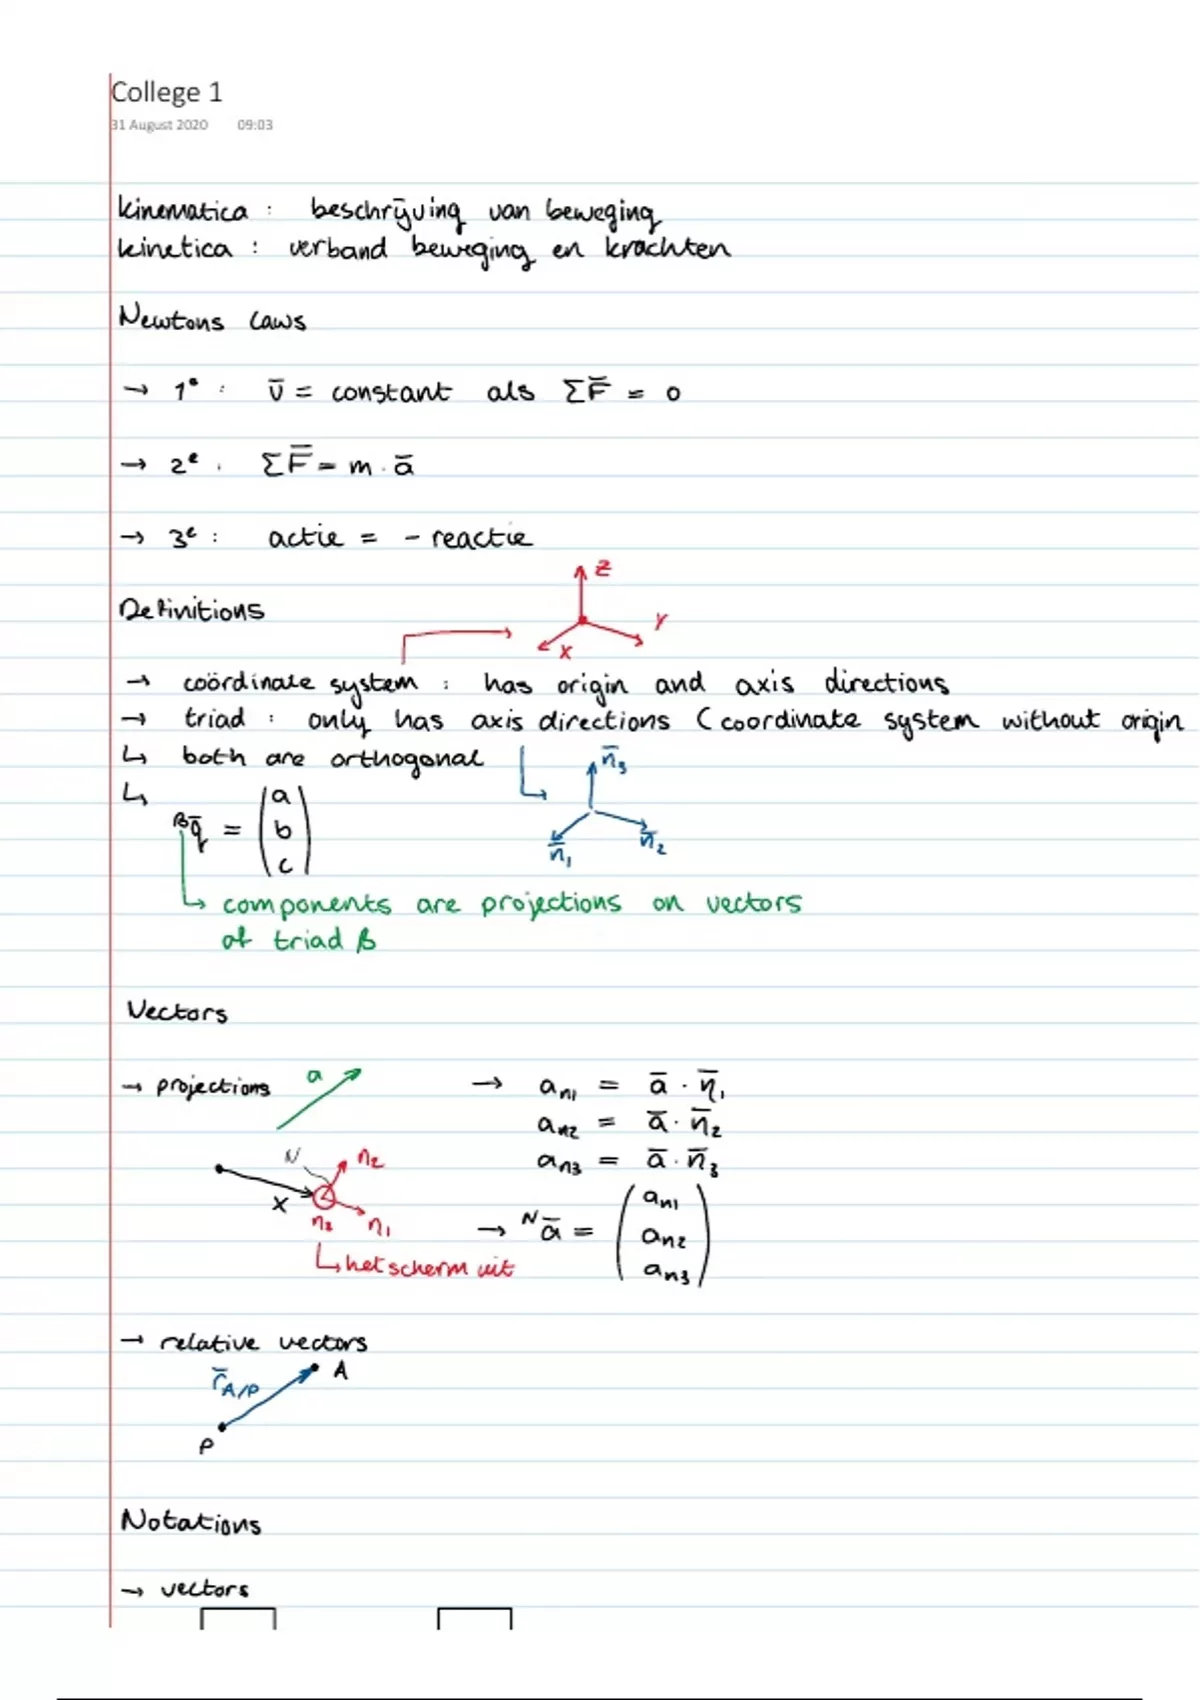 College 1
31 August 2020 09:03
kinematica : beschrijving van beweging
kinetica : verband beweging en krachten
Newtons laws
→ 1e : v̄ = constant als ΣF̄ = 0
→ 2e : ΣF̄ = m · ā
→ 3e : actie = - reactie
z
y
x
Definitions
→ coördinate system : has origin and axis directions
→ triad : only has axis directions (coordinate system without origin
↳ both are orthogonal
n̄3
n̄2
n̄1
↳ ᴮq̄ = (a b c)
↳ components are projections on vectors
of triad B
Vectors
→ projections
a
→ an1 = ā · n̄1
an2 = ā · n̄2
an3 = ā · n̄3
N
n2
x
n3
n1
↳ het scherm uit
→ ᴺā = (an1 an2 an3)
→ relative vectors
r̄A/P
A
P
Notations
→ vectors